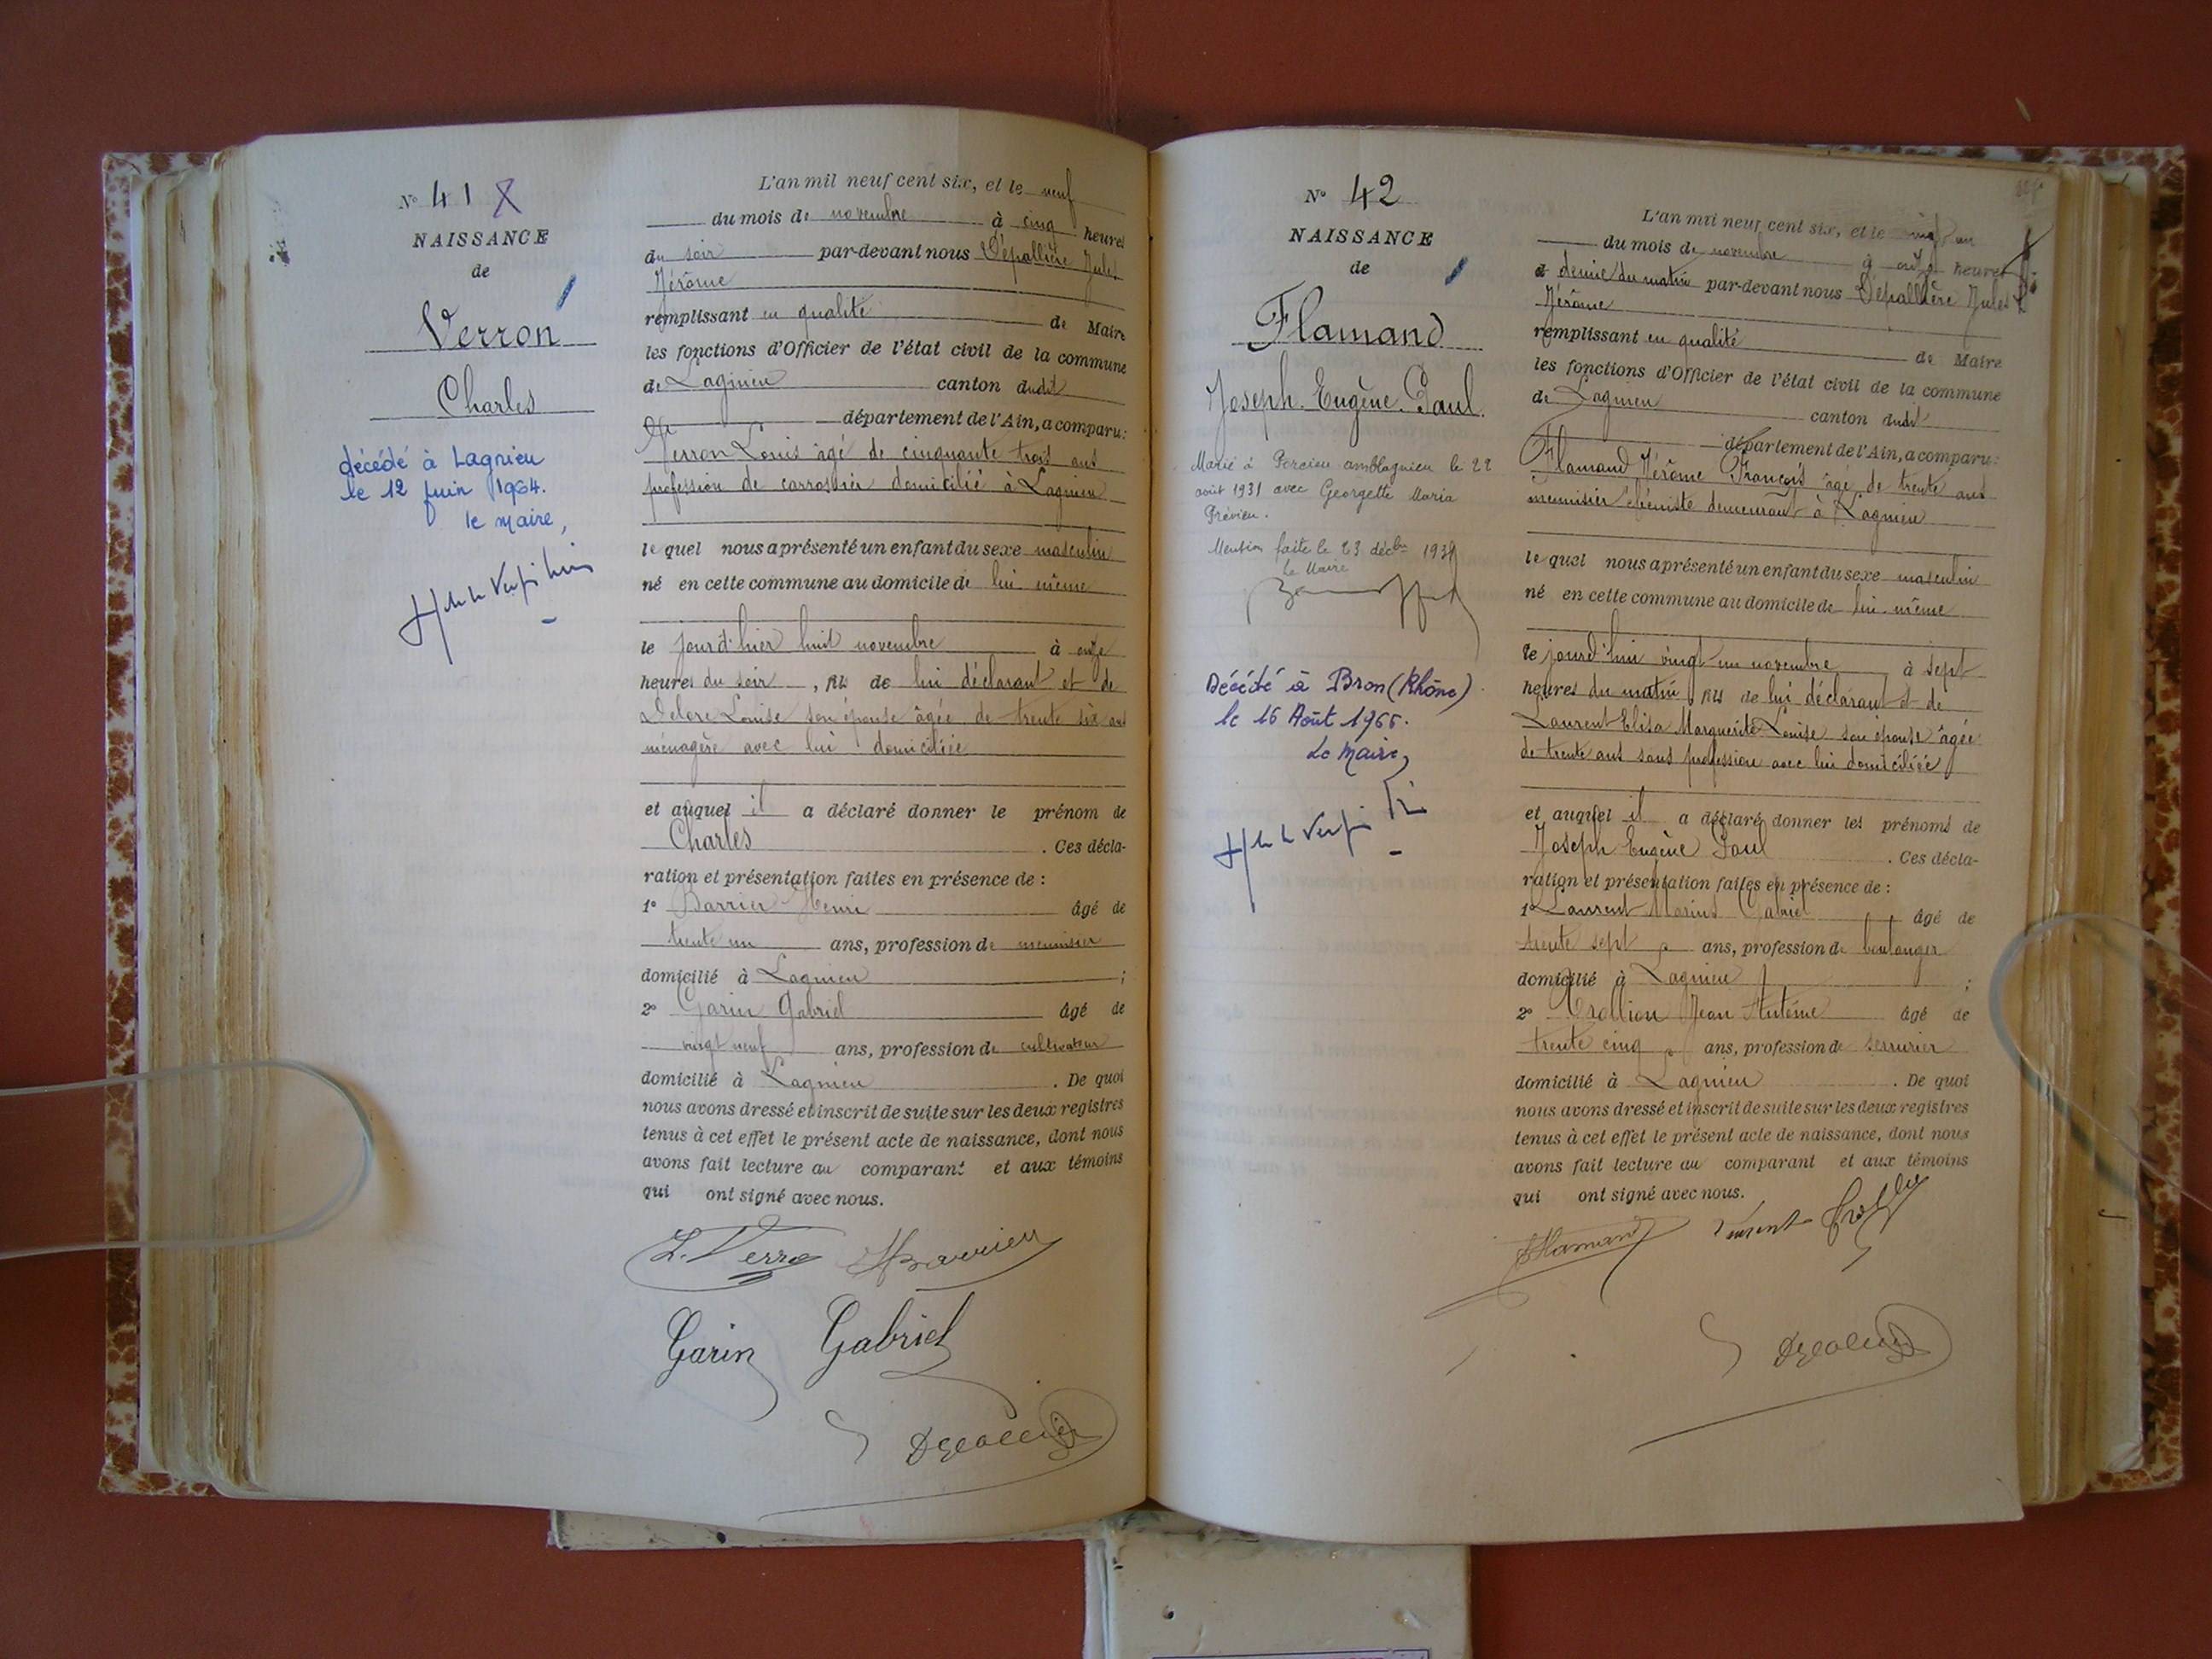 N° 41 X
NAISSANCE
de
Verron
Charles
décédé à Lagnieu
le 12 juin 1964.
le maire,
L'an mil neuf cent six, et le neuf
du mois de novembre à cinq heures
du soir par-devant nous Dépallière Jules
Jérôme
remplissant en qualité de Maire
les fonctions d'Officier de l'état civil de la commune
de Lagnieu canton dudit
département de l'Ain, a comparu:
Verron Louis âgé de cinquante trois ans
profession de carrossier domicilié à Lagnieu
lequel nous a présenté un enfant du sexe masculin
né en cette commune au domicile de lui même
le jourd'hier huit novembre à onze
heures du soir, fils de lui déclarant et de
Delore Louise son épouse âgée de trente six ans
ménagère avec lui domiciliée
et auquel il a déclaré donner le prénom de
Charles . Ces décla-
ration et présentation faites en présence de :
1° Barrier Henri âgé de
trente un ans, profession de menuisier
domicilié à Lagnieu ;
2° Garin Gabriel âgé de
vingt neuf ans, profession de cultivateur
domicilié à Lagnieu . De quoi
nous avons dressé et inscrit de suite sur les deux registres
tenus à cet effet le présent acte de naissance, dont nous
avons fait lecture au comparant et aux témoins
qui ont signé avec nous.
L. Verro HBarrier
Garin Gabriel
N° 42
NAISSANCE
de
Flamand
Joseph. Eugène. Paul.
Marié à Porcieu amblagnieu le 22
août 1931 avec Georgette Maria
Prévieu.
Mention faite le 23 décbre 1931
Le Maire
Décédé à Bron (Rhône)
le 16 Août 1966.
Le Maire,
L'an mil neuf cent six, et le vingt un
du mois de novembre à onze heures
et demie du matin par-devant nous Dépallière Jules
Jérôme
remplissant en qualité de Maire
les fonctions d'Officier de l'état civil de la commune
de Lagnieu canton dudit
département de l'Ain, a comparu:
Flamand Jérôme François âgé de trente ans
menuisier ébéniste demeurant à Lagnieu
lequel nous a présenté un enfant du sexe masculin
né en cette commune au domicile de lui-même
le jourd'hui vingt un novembre à sept
heures du matin fils de lui déclarant et de
Laurent Elisa Marguerite Louise son épouse âgée
de trente ans sans profession avec lui domiciliée
et auquel il a déclaré donner les prénoms de
Joseph Eugène Paul . Ces décla-
ration et présentation faites en présence de :
1° Laurent Marius Gabriel âgé de
trente sept ans, profession de boulanger
domicilié à Lagnieu ;
2° Trollion Jean Antoine âgé de
trente cinq ans, profession de serrurier
domicilié à Lagnieu . De quoi
nous avons dressé et inscrit de suite sur les deux registres
tenus à cet effet le présent acte de naissance, dont nous
avons fait lecture au comparant et aux témoins
qui ont signé avec nous.
Flamand Laurent